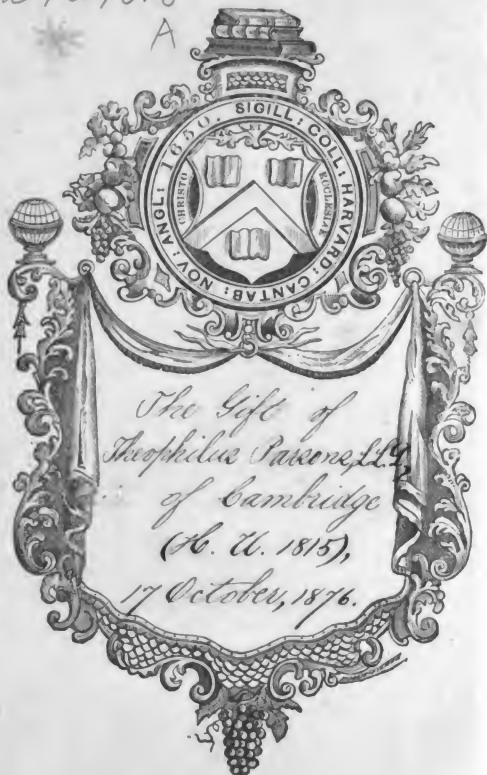 A
SIGILL: COLL: HARVARD: CANTAB: NOV: ANGL: 1650.
ET
CHRISTO
ECCLESIAE
The Gift of
Theophilus Parsons, LL.D.,
of Cambridge
(H. U. 1815),
17 October, 1876.